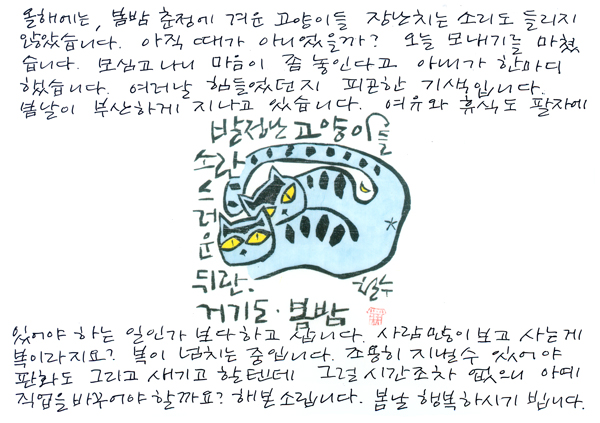 올해에는, 봄밤 춘정에 겨운 고양이들 장난치는 소리도 들리지
않았습니다. 아직 때가 아니었을까? 오늘 모내기를 마쳤
습니다. 모심고나니 마음이 좀 놓인다고 아내가 한마디
했습니다. 여러날 힘들었던지 피곤한 기색입니다.
봄날이 부산하게 지나고 있습니다. 여유와 휴식도 팔자에
발정난 고양이들
소란스러운
뒤란.
거기도·봄밤
철수
있어야 하는 일인가 보다하고 삽니다. 사람많이보고 사는게
복이라지요? 복이 넘치는 중입니다. 조용히 지낼수 있어야
판화도 그리고 새기고 할텐데 그럴시간조차 없으니 아예
직업을바꾸어야 할까요? 해본소립니다. 봄날 행복하시기 빕니다.